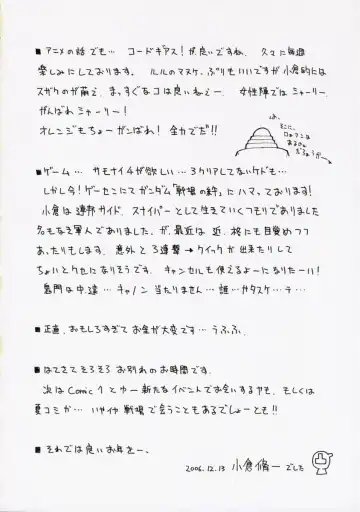 ■アニメの話でも… コードギアス!が良いですね、久々に毎週
楽しみにしております。ルルのマヌケっぷりもいいですが小倉的には
スザクのが萌え、まっすぐなコは良いねえー 女性陣ではシャーリー、
がんばれシャーリー!
オレンジもちょーガンばれ!全力でだ!!
ふ、
そこに、
ロマンは
あるの
だろうかー
■ゲーム … サモナイ4が欲しい…3クリアしてないケドも…
しかし今!ゲーセンにてガンダム「戦場の絆」にハマっております!
小倉は連邦サイド、スナイパーとして生きていくつもりでありました
名もなき軍人でありました。が、最近は近、格にも目覚めつつ
あったりもします。意外と3連撃→クイックが出来たりして
ちょいとクセになりそうです。キャンセルも使えるよーになりたーい!
鬼門は中遠…キャノン当たりません…誰かタスケ…テ…
■正直、おもしろすぎてお金が大変です…うふふ。
■はてさてそろそろお別れのお時間です。
次はComic1とゆー新たなイベントでお会いするかも、もしくは
夏コミか… いやいや戦場で会うこともあるでしょーとも!!
■それでは良いお年をー。
2006.12.13 小倉脩一でした